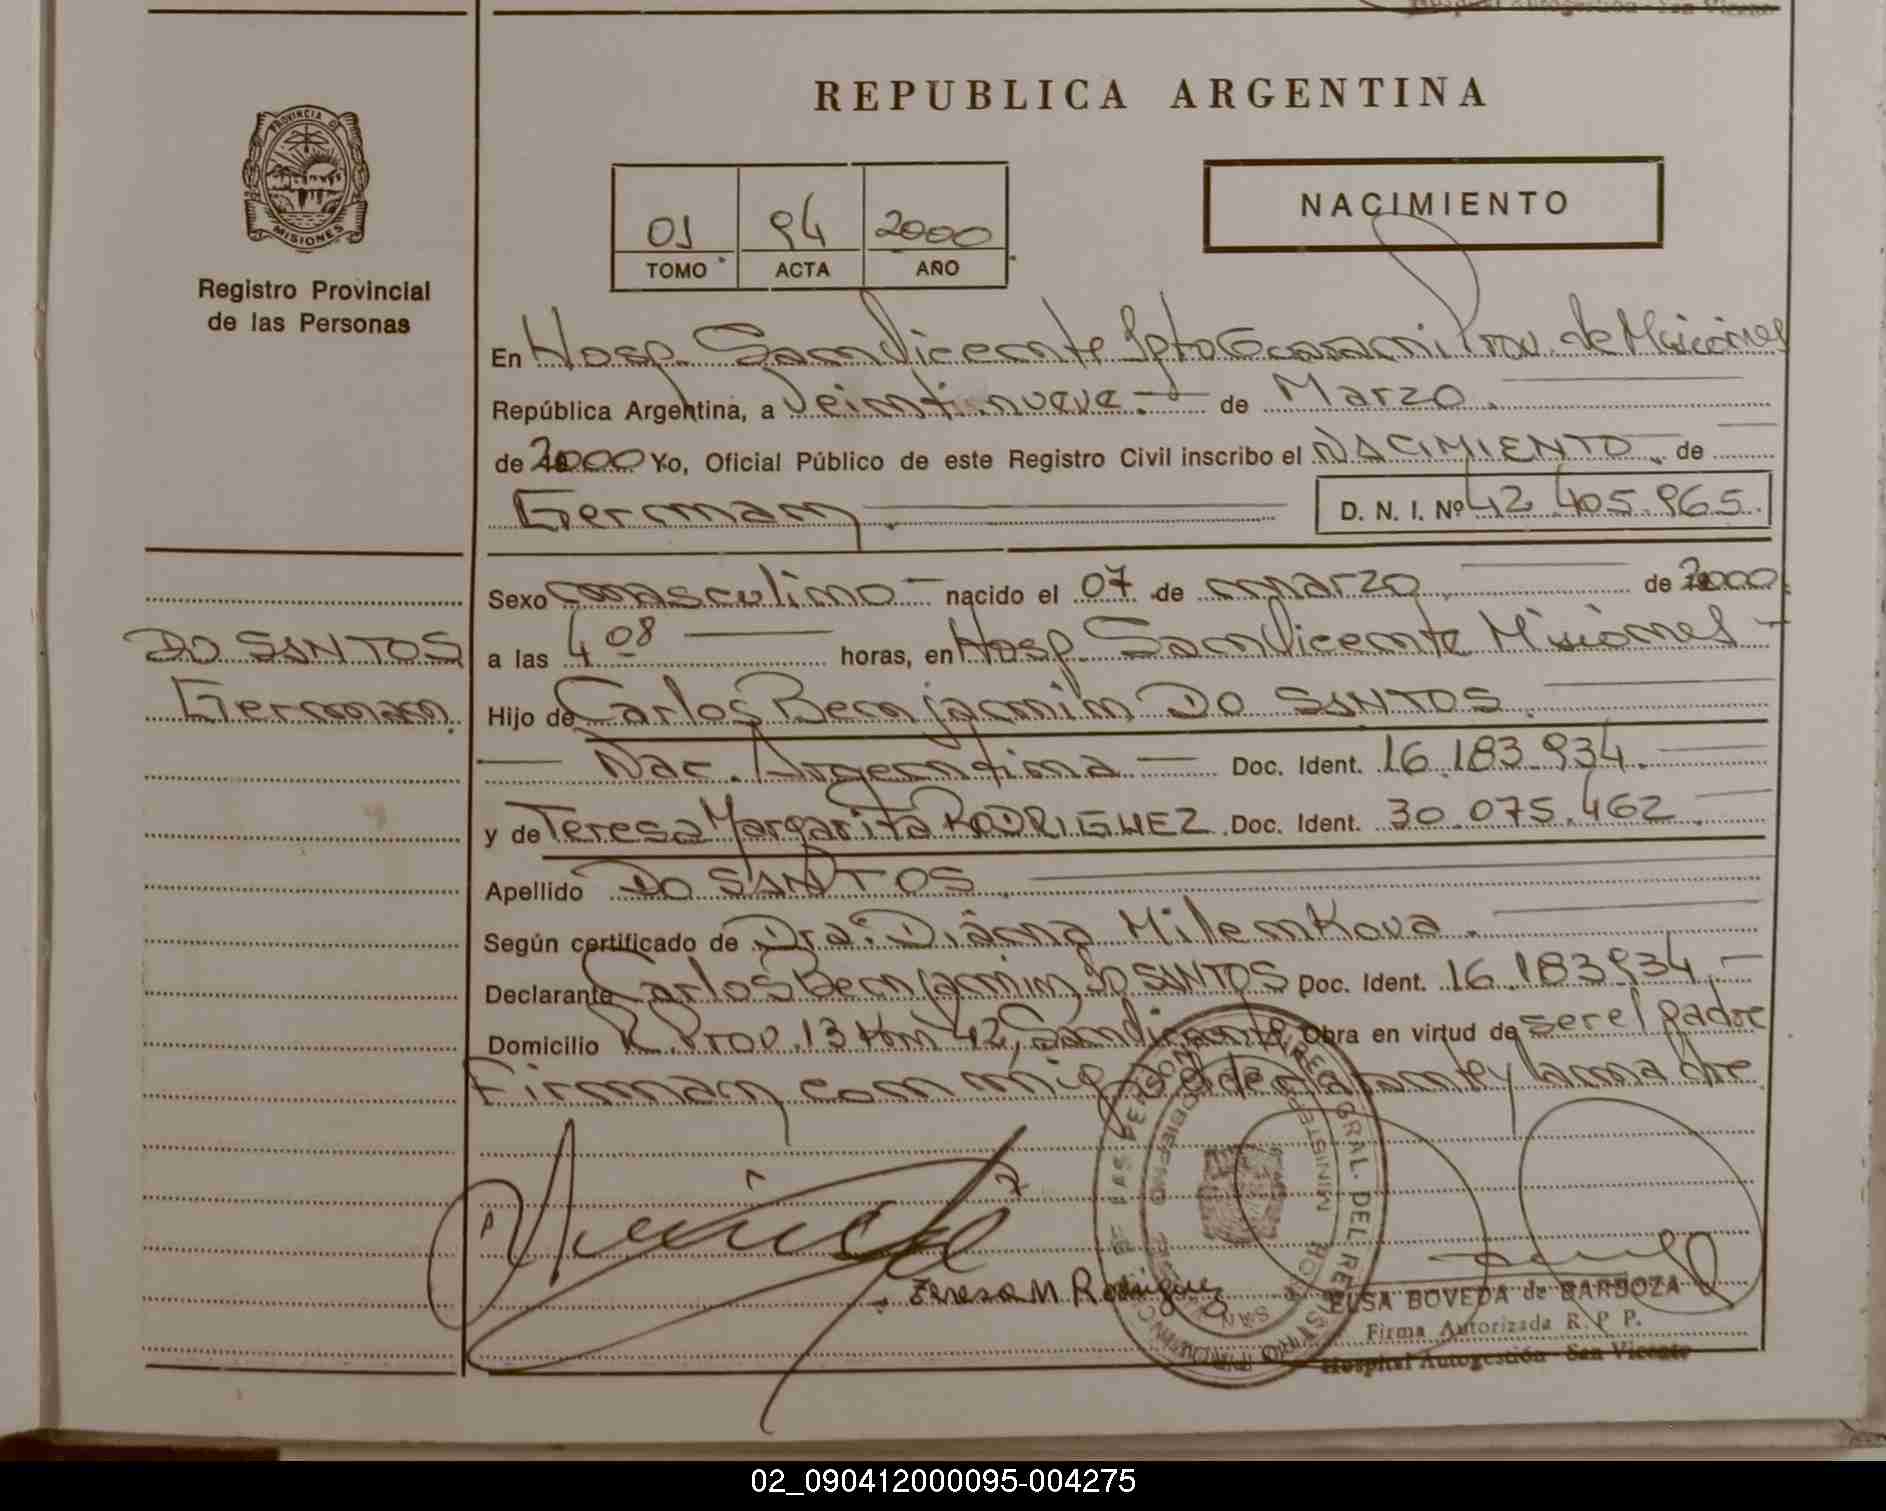 REPUBLICA ARGENTINA
PROVINCIA DE
MISIONES
Registro Provincial
de las Personas
01 94 2000
TOMO ACTA AÑO
NACIMIENTO
En Hosp. San Vicente Dpto Guarani Prov. de Misiones
República Argentina, a Veintinueve.- de Marzo.
de 2000 Yo, Oficial Público de este Registro Civil inscribo el NACIMIENTO. de
German. D. N. I. Nº 42.405.965.
Sexo masculino - nacido el 07 de marzo de 2000
a las 4 08 horas, en Hosp. San Vicente Misiones -
DO SANTOS
German.
Hijo de Carlos Benjamin DO SANTOS.
Nac. Argentina - Doc. Ident. 16.183.934.
y de Teresa Margarita RODRIGUEZ. Doc. Ident. 30.075.462.
Apellido DO SANTOS.
Según certificado de Dra. Diana Milenkova.
Declarante Carlos Benjamin DO SANTOS Doc. Ident. 16.183.934.-
Domicilio R. Prov. 13 Km 42, San Vicente, Obra en virtud de ser el padre
Firman conmigo el declarante y la madre
Teresa M Rodriguez
ELSA BOVEDA de BARBOZA
Firma Autorizada R. P P.
Hospital Autogestión - San Vicente
02_090412000095-004275